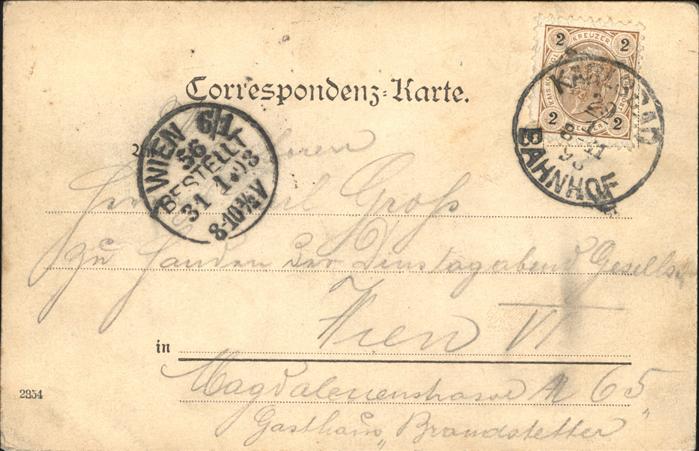 Correspondenz-Karte.
2 KREUZER 2
2 2
BAHNHOF
WIEN 6/1
56
BESTELLT
31 1 98
8-10½V
Groß
zu Handen der Dienstagabend Gesells
in Wien VI
Magdalenenstrasse № 65
Gasthaus „Brandstetter"
2854